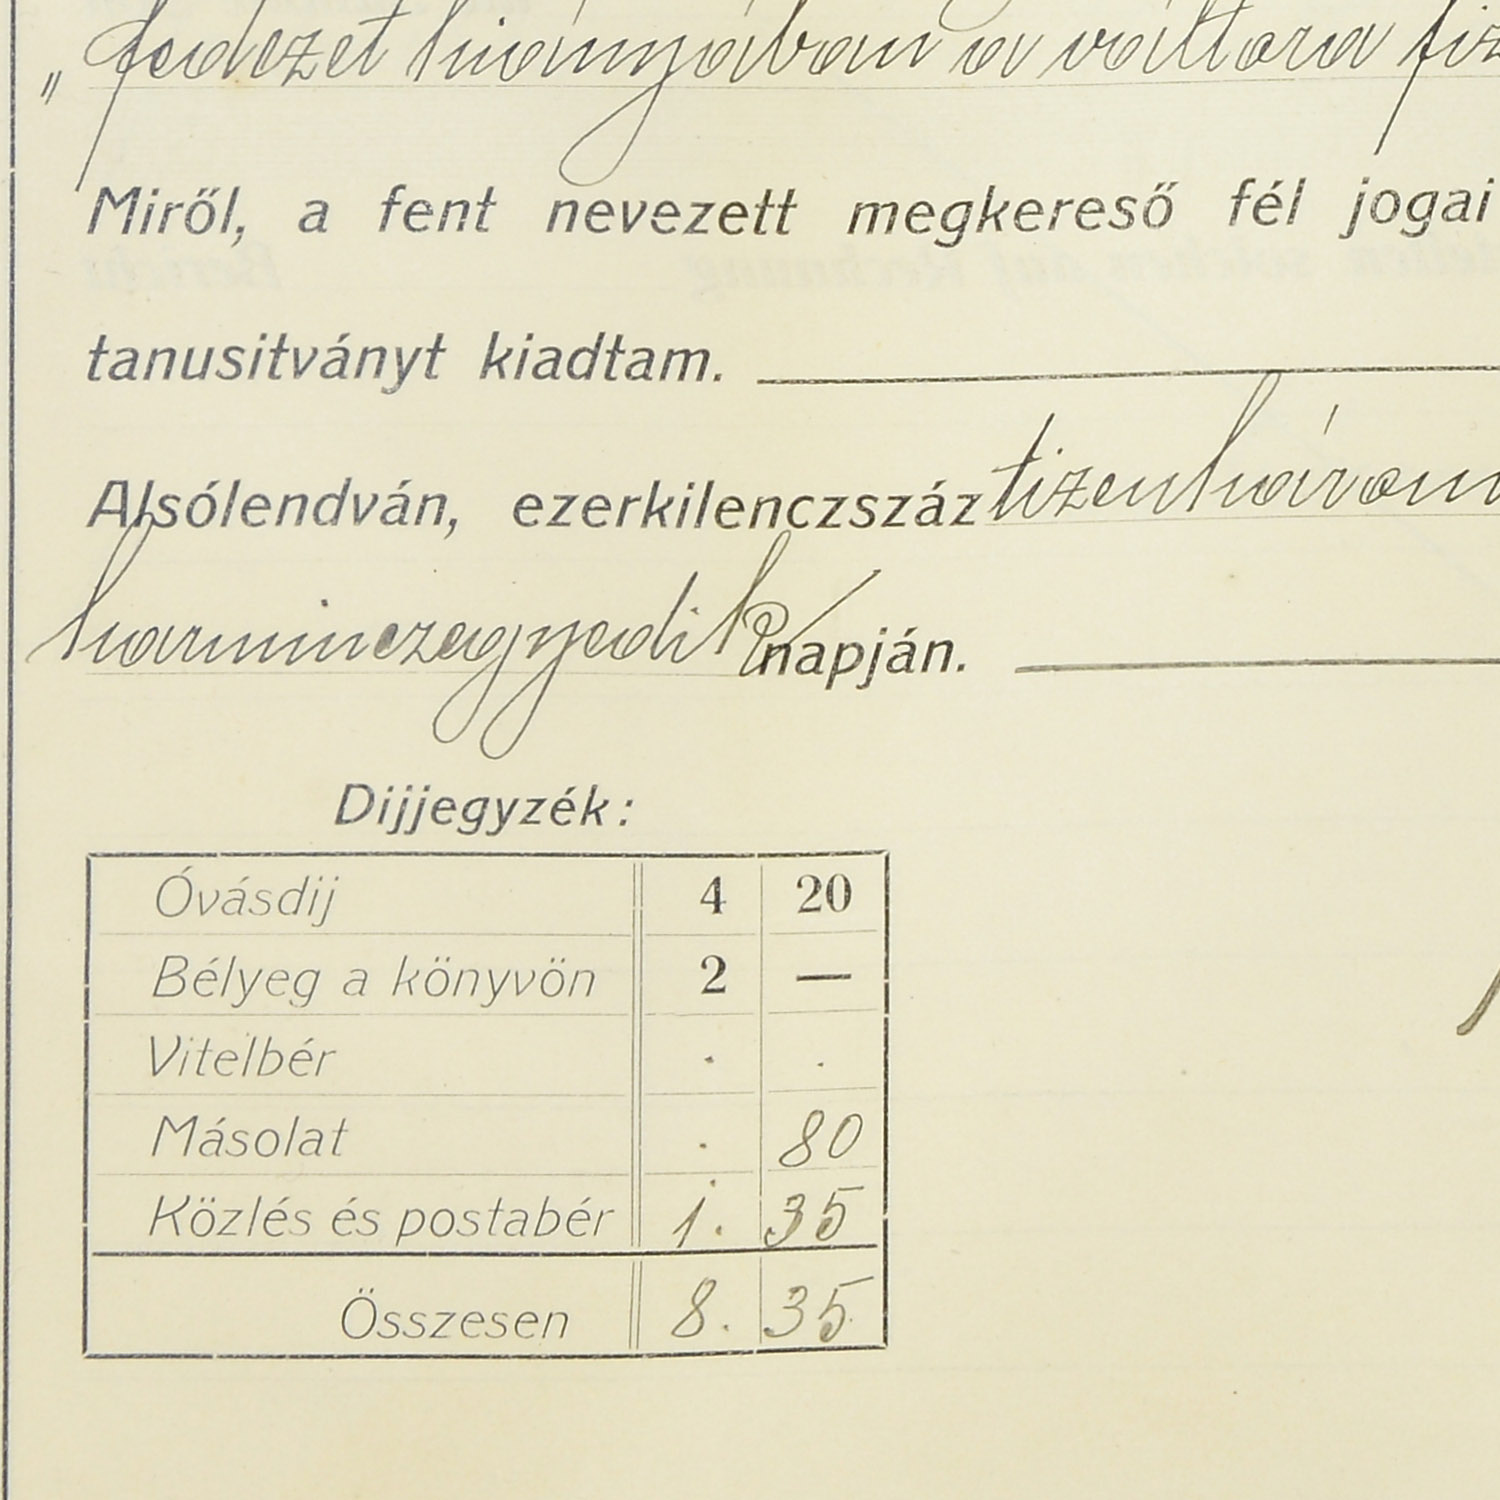 „ fedezet hiányában a váltóra fiz
Miről, a fent nevezett megkereső fél jogai
tanusitványt kiadtam.
Alsólendván, ezerkilenczszáz tizenhárom
harminczegyedik napján.
Dijjegyzék:
Óvásdij 4 20
Bélyeg a könyvön 2 —
Vitelbér . .
Másolat . 80
Közlés és postabér 1. 35
Összesen 8. 35